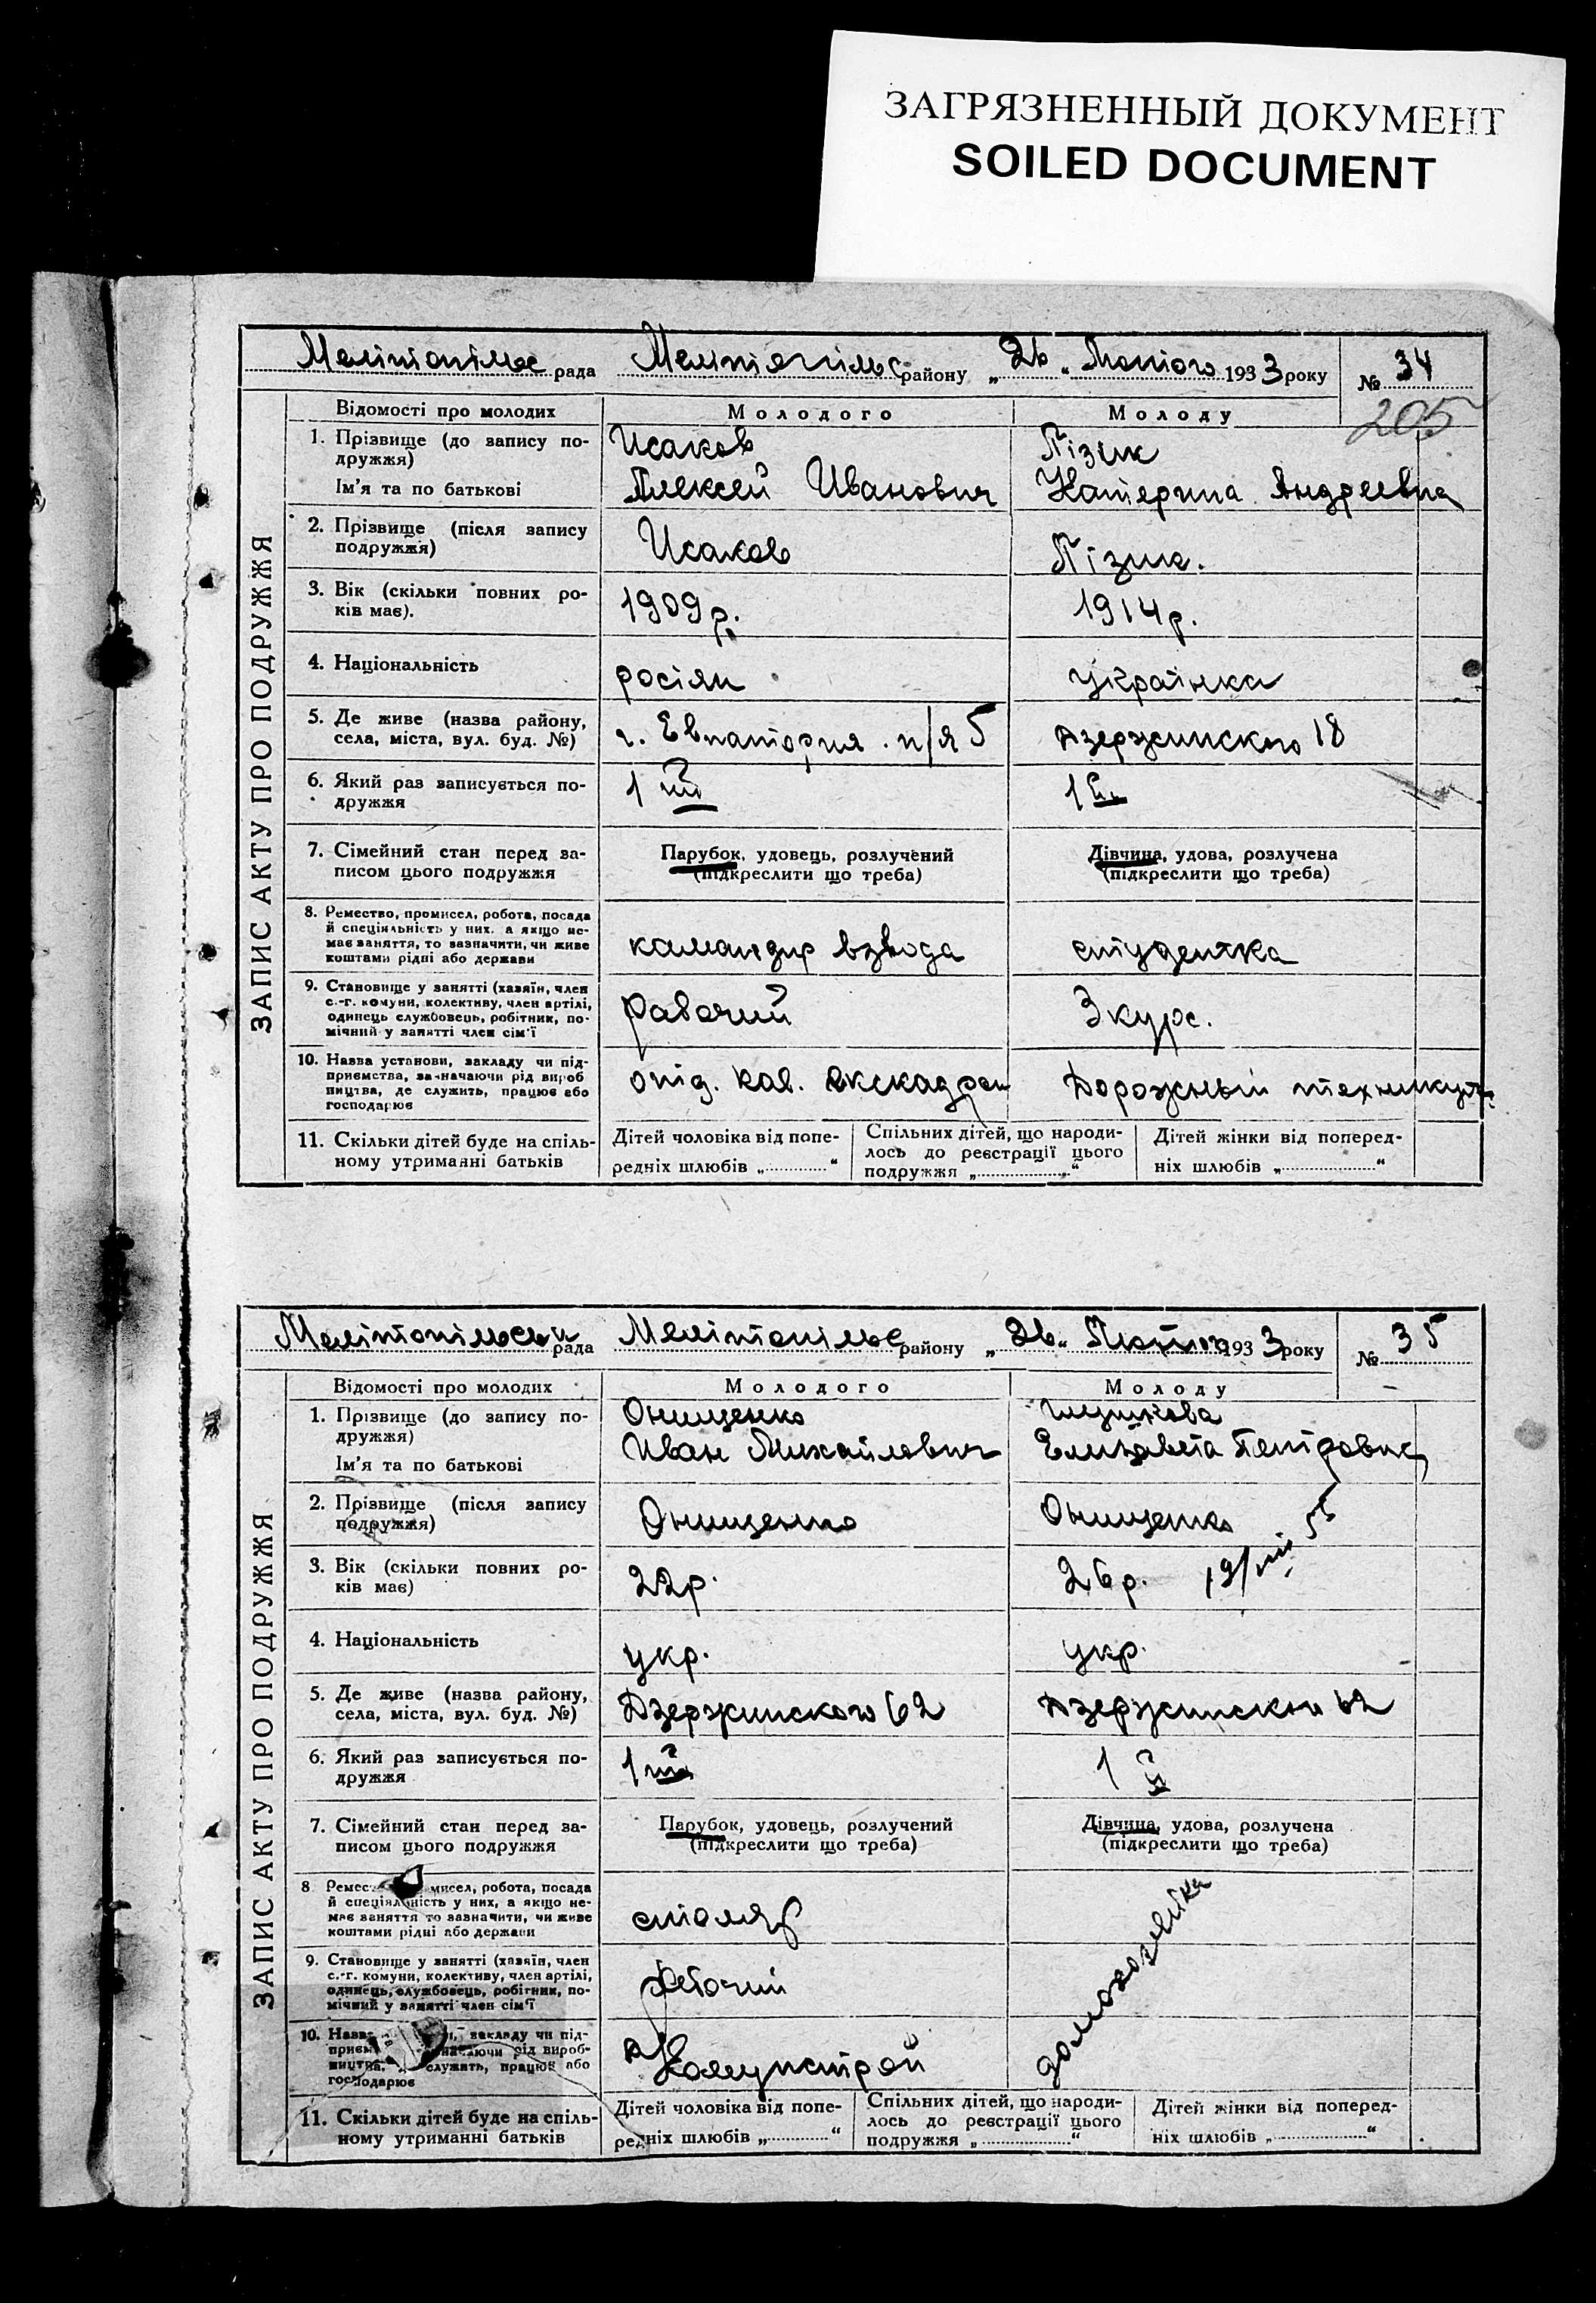 ЗАГРЯЗНЕННЫЙ ДОКУМЕНТ
SOILED DOCUMENT
Мелітопільс рада Мелітопільс району „26„ Лютого 1933 року № 34
205
ЗАПИС АКТУ ПРО ПОДРУЖЖЯ
Відомості про молодих Молодого Молоду
1. Прізвище (до запису по-
дружжя)
Ім'я та по батькові
Исаков
Алексей Иванович
Пізик
Катерина Андреевна
2. Прізвище (після запису
подружжя)
Исаков
Пізик.
3. Вік (скільки повних ро-
ків має).
1909 р.
1914 р.
4. Національність
росіян
українка
5. Де живе (назва району,
села, міста, вул. буд. №)
г. Евпатория . п/я 5
Дзержинского 18
6. Який раз записується по-
дружжя
1 ий
1 ий
7. Сімейний стан перед за-
писом цього подружжя
Парубок, удовець, розлучений
(підкреслити що треба)
Дівчина, удова, розлучена
(підкреслити що треба)
8. Ремество, промисел, робота, посада
й спеціяльність у них, а якщо не-
має заняття, то зазначити, чи живе
коштами рідні або держави
командир взвода
студентка
9. Становище у занятті (хазяїн, член
с.-г. комуни, колективу, член артілі,
одинець службовець, робітник, по-
мічний у занятті член сім'ї
Рабочий
3 курс.
10. Назва установи, закладу чи під-
приємства, зазначаючи рід вироб
ництва, де служить, працює або
господарює
отд. кав. екскадрон
Дорожный техникум
11. Скільки дітей буде на спіль-
ному утриманні батьків
Дітей чоловіка від попе-
редніх шлюбів „ “
Спільних дітей, що народи-
лось до реєстрації цього
подружжя „ “
Дітей жінки від поперед-
ніх шлюбів „ “
Мелітопільськ рада Мелітопільс району „26„ Лютого 1933 року № 35
ЗАПИС АКТУ ПРО ПОДРУЖЖЯ
Відомості про молодих Молодого Молоду
1. Прізвище (до запису по-
дружжя)
Ім'я та по батькові
Онищенко
Иван Михайлович
Елизавета Петровна
2. Прізвище (після запису
подружжя)
Онищенко
Онищенко
3. Вік (скільки повних ро-
ків має)
22р.
26р.
19/VIII 55
4. Національність
укр.
укр.
5. Де живе (назва району,
села, міста, вул. буд. №)
Дзержинского 62
Дзержинского 62
6. Який раз записується по-
дружжя
1 ий
1 й
7. Сімейний стан перед за-
писом цього подружжя
Парубок, удовець, розлучений
(підкреслити що треба)
Дівчина, удова, розлучена
(підкреслити що треба)
8 Ремес мисел, робота, посада
й спеціяльність у них, а якщо не-
має заняття то зазначити, чи живе
коштами рідні або держави
столяр
домохозяйка
9. Становище у занятті (хазяїн, член
с.-г. комуни, колективу, член артілі,
одинець, службовець, робітник, по-
мічний у занятті член сім'ї
рабочий
10. Назва закладу чи під-
приєм ючи рід вироб-
ництва. служить, працює або
господарює
Комунстрой
11. Скільки дітей буде на спіль-
ному утриманні батьків
Дітей чоловіка від попе-
редніх шлюбів „ “
Спільних дітей, що народи-
лось до реєстрації цього
подружжя „ “
Дітей жінки від поперед-
ніх шлюбів „ “